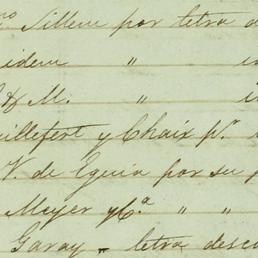 no Sillem por letra d
idem " id
& M. " i
uillefert y Chaix pr
V. de Eguia por su p
Meyer y Ca " "
Garay - letra desco